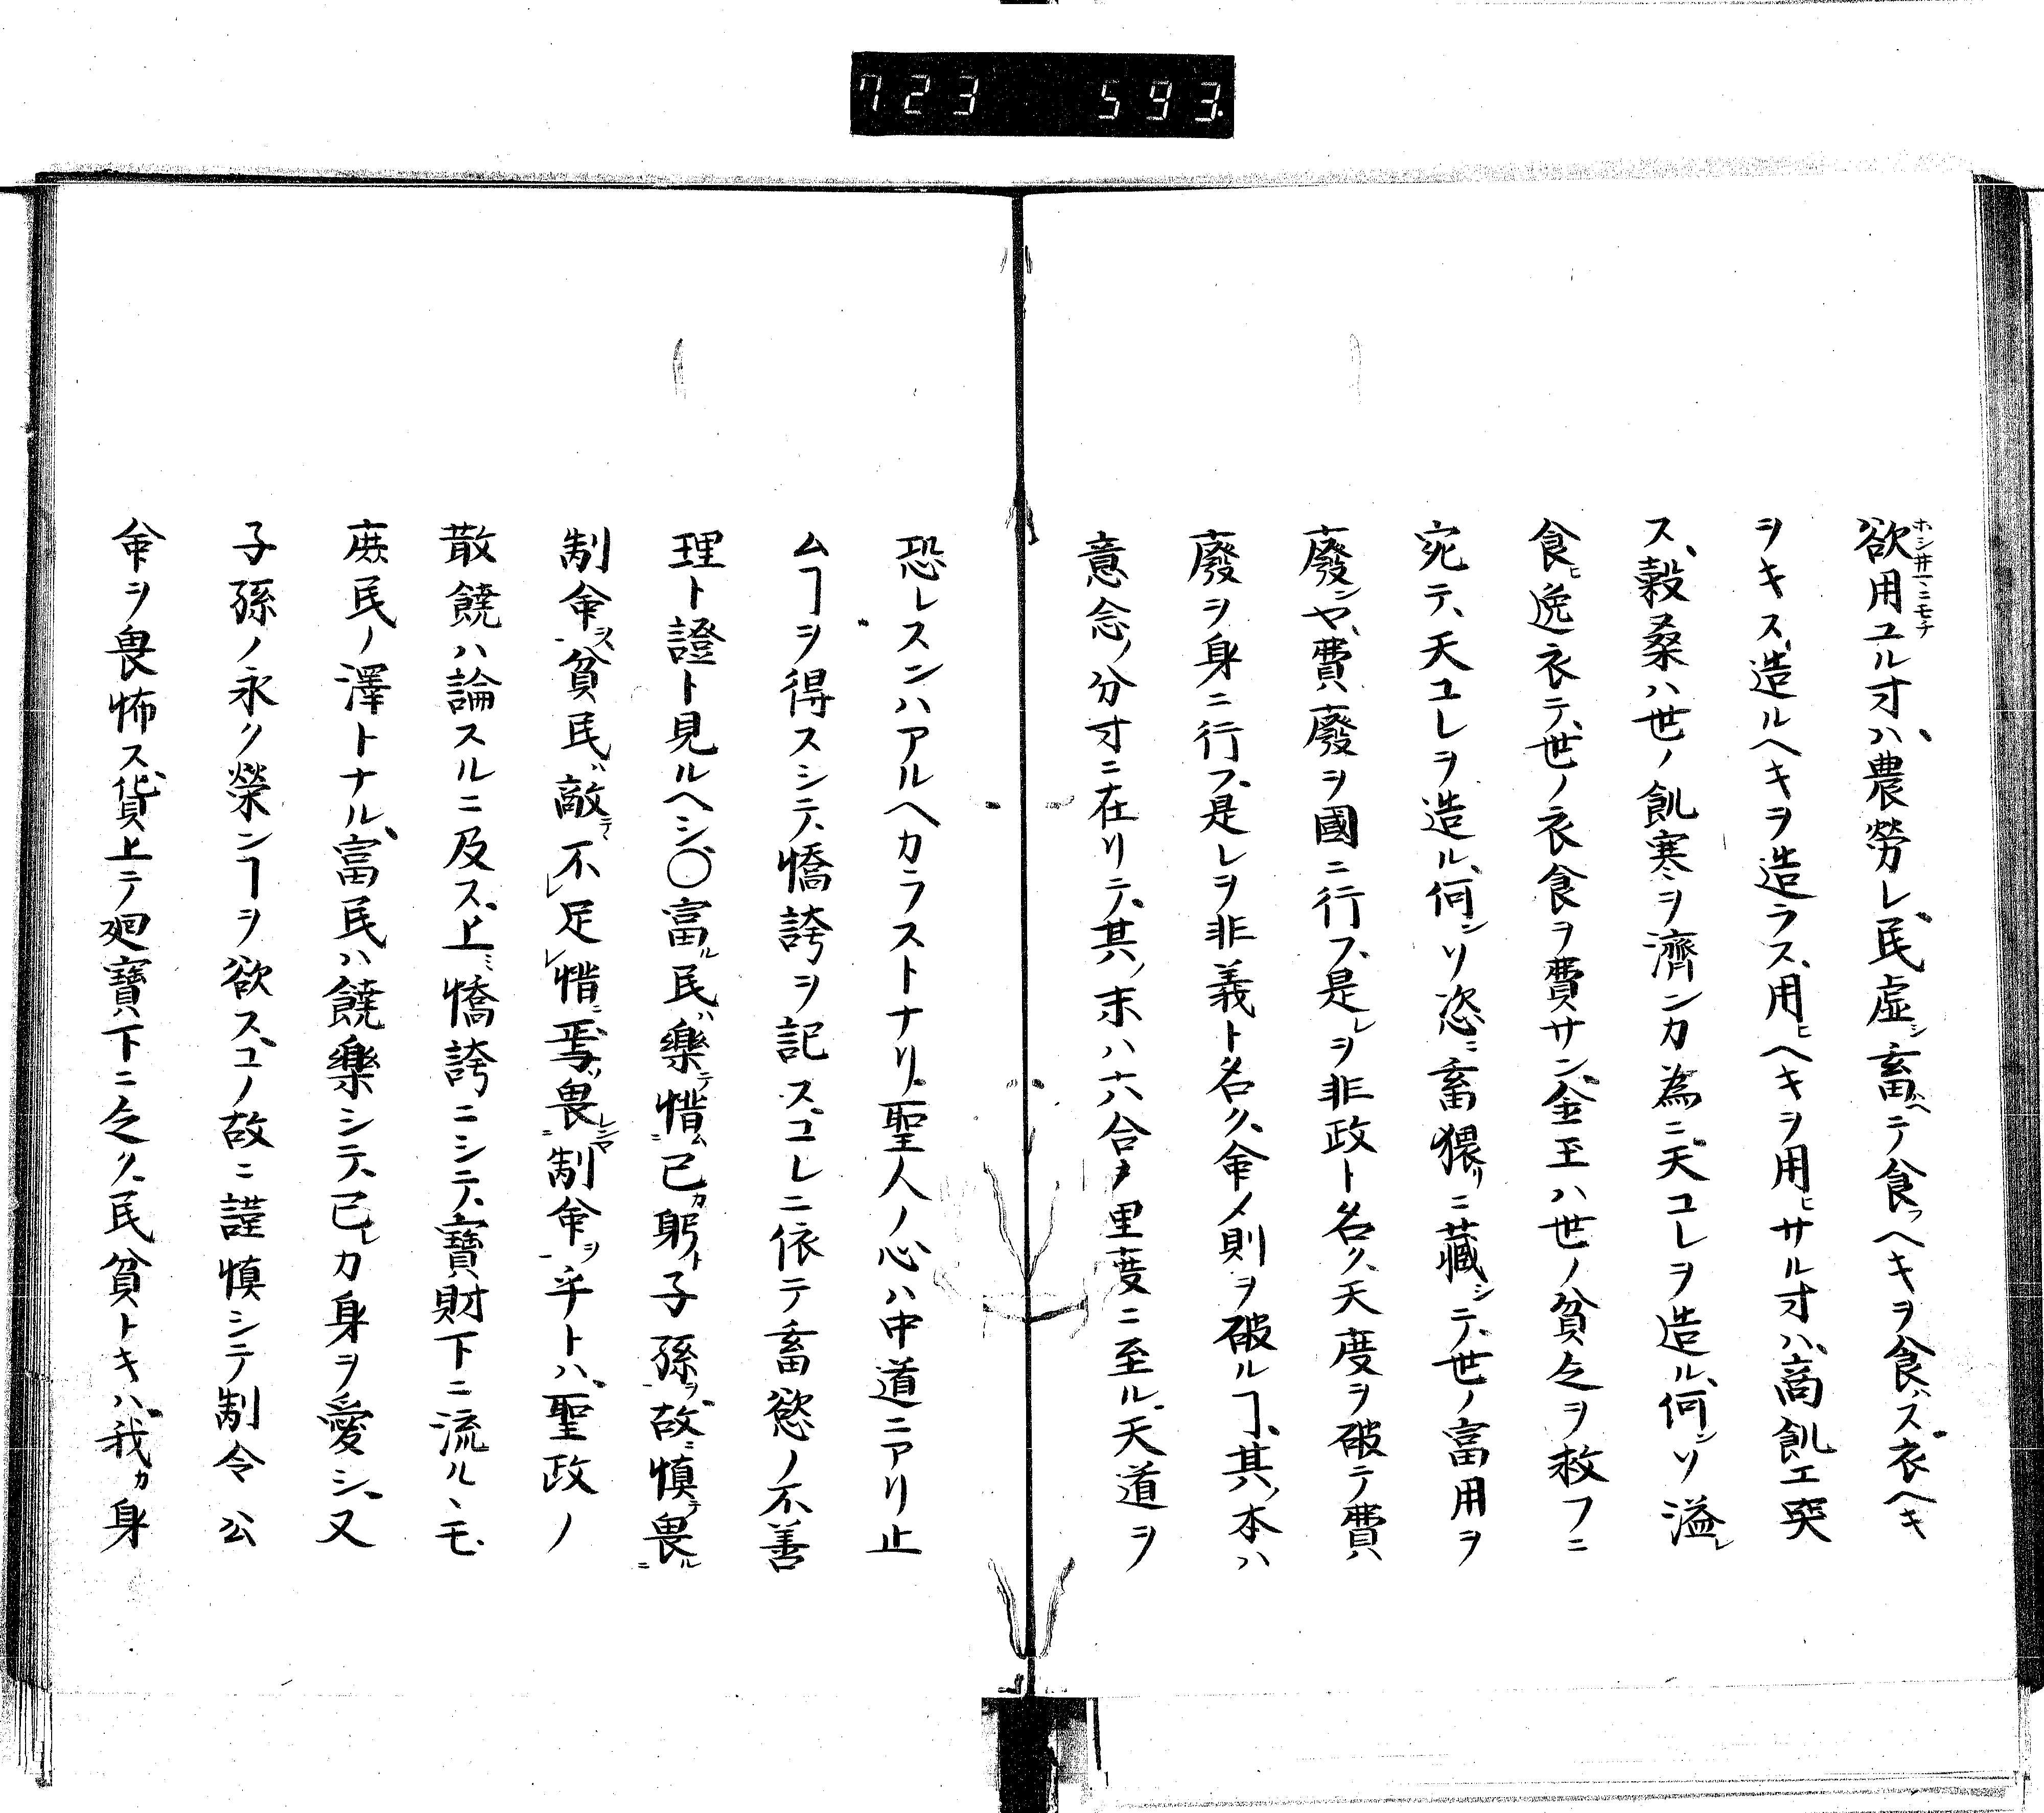 723 593
欲用ユルオハ農労レ民虚シ畜ヘテ食フヘキヲ食ハス衣ヘキ
ヲキス造ルヘキヲ造ラス用ヒヘキヲ用ヒサルオハ商飢エ突
ス穀桑ハ世ノ飢寒ヲ濟ンカ為ニ天ユレヲ造ル何ンソ溢レ
食ヒ逸衣テ世ノ衣食ヲ費サン金玉ハ世ノ貧乏ヲ救フニ
宛テ天ユレヲ造ル何ンソ恣ニ畜猥リニ藏シテ世ノ富用ヲ
廢シヤ費廢ヲ國ニ行フ是レヲ非政ト名ク天度ヲ破テ費
廢ヲ身ニ行フ是レヲ非義ト名ク命メ則ヲ破ルヿ其ノ本ハ
意念ノ分寸ニ在リテ其ノ末ハ六合ヲ里度ニ至ル天道ヲ
恐レスンハアルヘカラストナリ聖人ノ心ハ中道ニアリ止
ムヿヲ得スシテ憍誇ヲ記スユレニ依テ畜慾ノ不善
理ト證ト見ルヘシ〇富ル民ハ樂テ惜ム己カ躬ト子孫ヲ故ニ慎テ畏ル
制命ヲス貧民ハ敵テ不足惜ニ焉ソ畏レンヤ制命ヲ乎トハ聖政ノ
散饒ハ論スルニ及ス上ミ憍誇ニシテ寶財下ニ流ルヽモ
庶民ノ澤トナル富民ハ饒樂シテ己レカ身ヲ愛シ又
子孫ノ永ク榮ンヿヲ欲スユノ故ニ謹慎シテ制令公
命ヲ畏怖ス貨上テ廻寶下ニ乏ク民貧トキハ我カ身